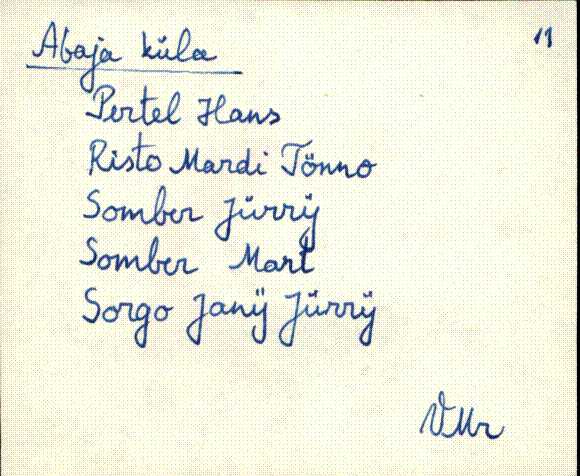 11
Abaja küla
Pertel Hans
Risto Mardi Tönno
Somber Jürrÿ
Somber Mart
Sorgo Janÿ Jürrÿ
VMr